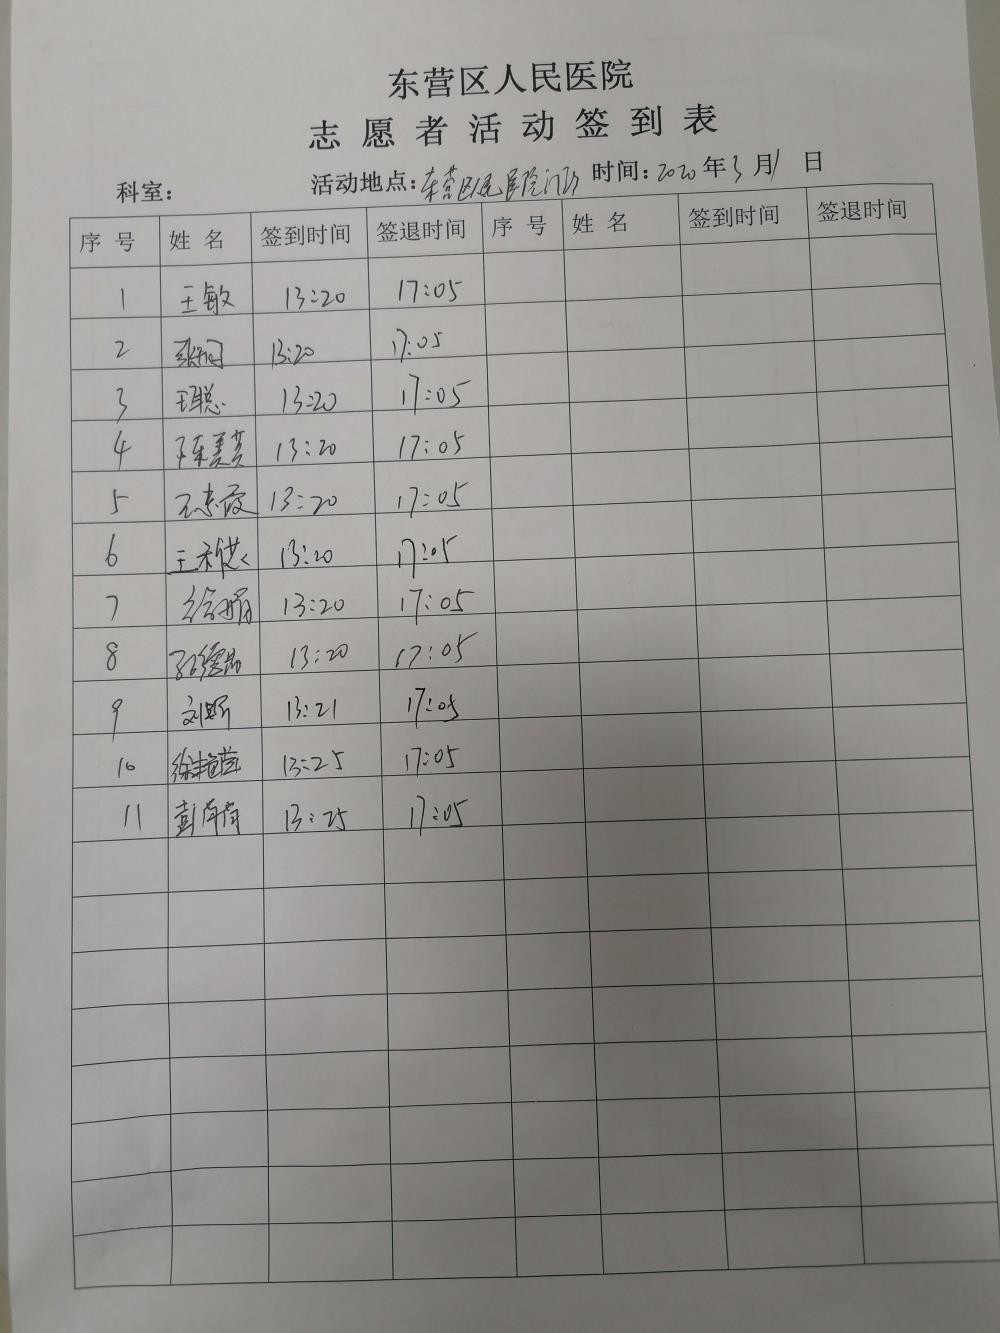 东营区人民医院
志愿者活动签到表
科室： 活动地点：东营区人民医院门诊 时间：2020年3月1日
序号 姓名 签到时间 签退时间 序号 姓名 签到时间 签退时间
1 王敏 13:20 17:05
2 13:20 17:05
3 王聪 13:20 17:05
4 陈美英 13:20 17:05
5 石志霞 13:20 17:05
6 13:20 17:05
7 13:20 17:05
8 13:20 17:05
9 13:21 17:05
10 13:25 17:05
11 彭苘苘 13:25 17:05